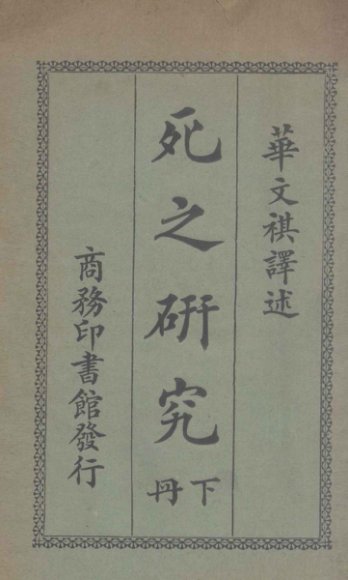 華文祺譯述
死之研究
下冊
商務印書館發行